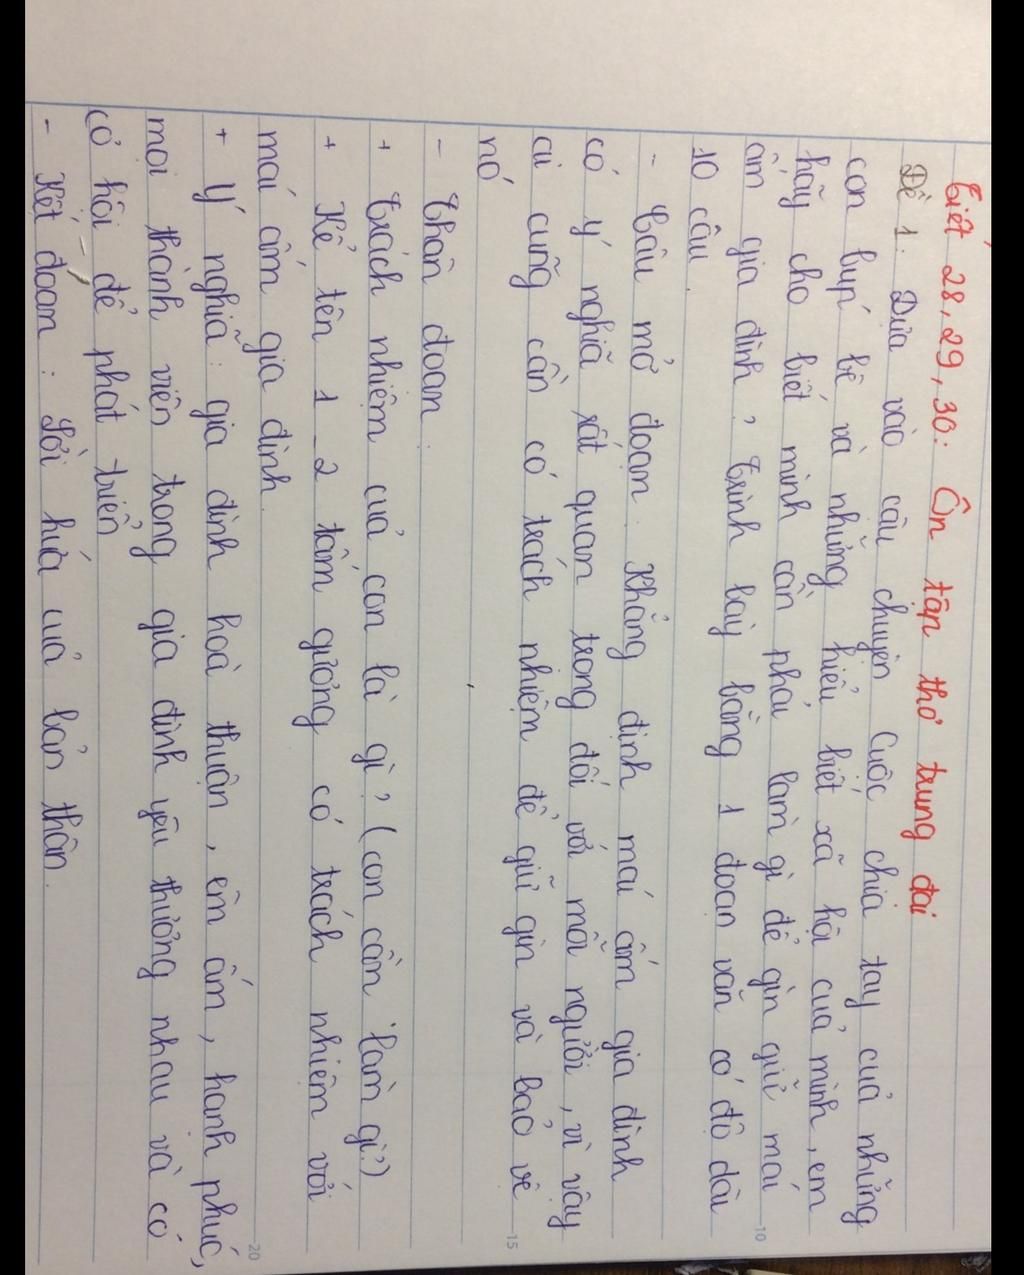 Tiết 28, 29, 30: Ôn tập thơ trung đại
Đề 1: Dựa vào câu chuyện Cuộc chia tay của những
con búp bê và những hiểu biết xã hội của mình, em
hãy cho biết mình cần phải làm gì để gìn giữ mái
ấm gia đình, Trình bày bằng 1 đoạn văn có độ dài
10 câu.
- Câu mở đoạn: Khẳng định mái ấm gia đình
có ý nghĩa rất quan trọng đối với mỗi người, vì vậy
ai cũng cần có trách nhiệm để giữ gìn và bảo vệ
nó
- Thân đoạn:
+ Trách nhiệm của con là gì, (con cần làm gì?)
+ Kể tên 1-2 tấm gương có trách nhiệm với
mái ấm gia đình.
+ Ý nghĩa: gia đình hoà thuận, êm ấm, hạnh phúc,
mọi thành viên trong gia đình yêu thương nhau và có
cơ hội để phát triển
- Kết đoạn: Lời hứa của bản thân.
10
15
20